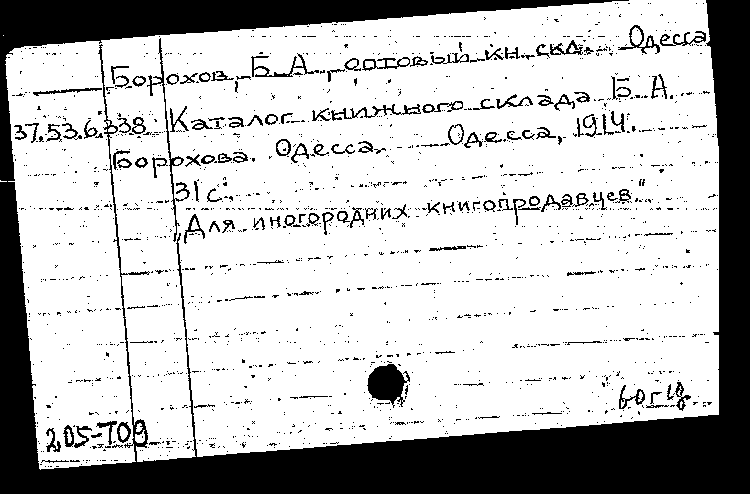 Борохов, Б. А., оптовый кн. скл. Одесса
37.53.6.338 Каталог книжного склада Б. А.
Борохова. Одесса. Одесса, 1914.
31 с.
„Для иногородних книгопродавцев“
2,05-Т09